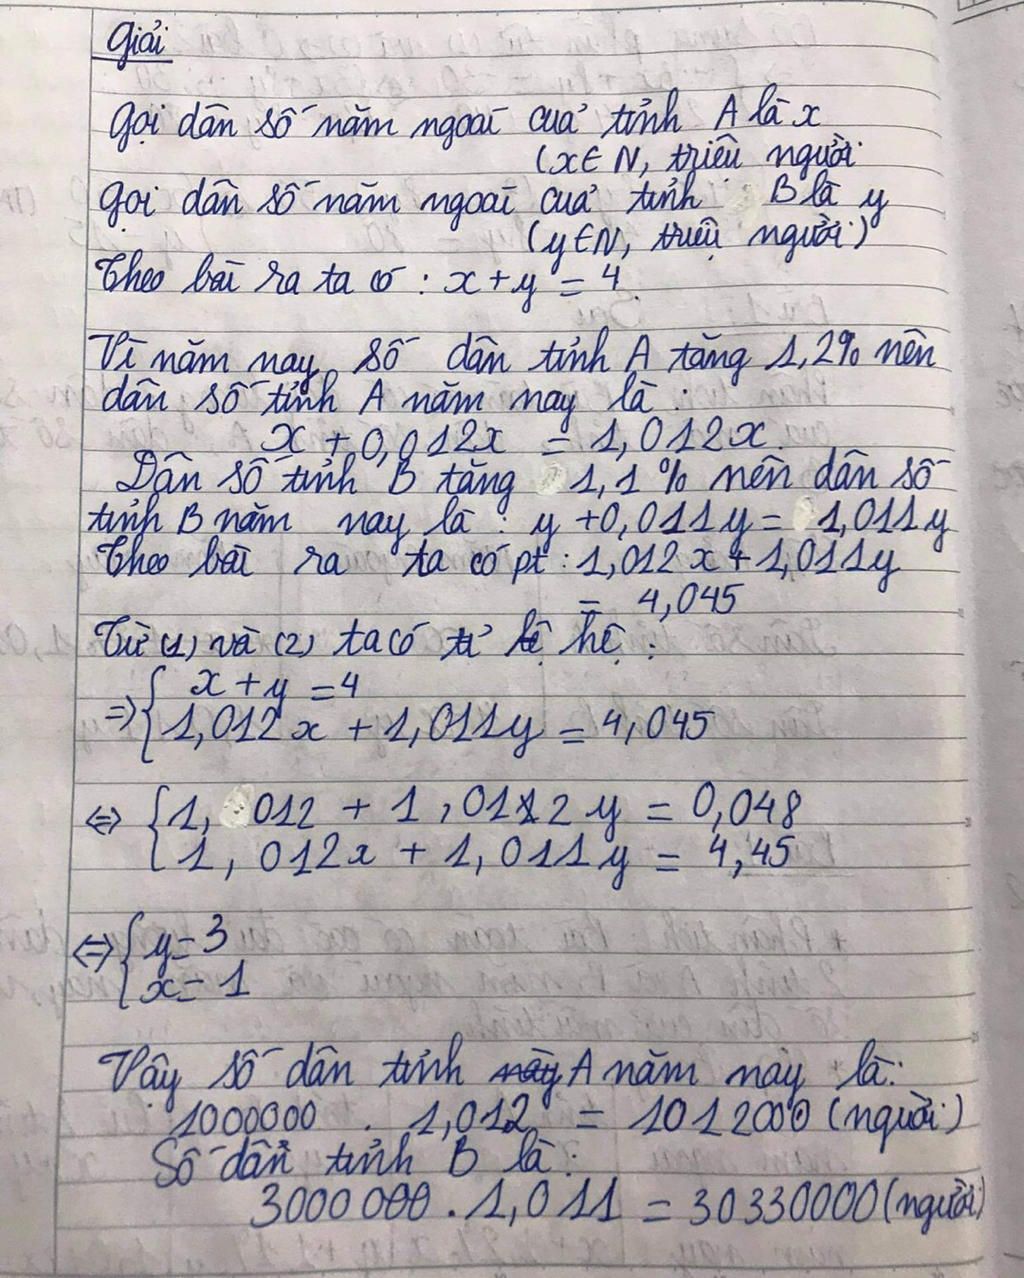 Giải
Gọi dân số năm ngoái của tỉnh A là x
(x∈N, triệu người
Gọi dân số năm ngoái của tỉnh B là y
(y∈N, triệu người)
Theo bài ra ta có : x + y = 4
Vì năm nay số dân tỉnh A tăng 1,2% nên
dân số tỉnh A năm nay là :
x + 0,012x = 1,012x
Dân số tỉnh B tăng 1,1% nên dân số
tỉnh B năm nay là : y + 0,011y = 1,011y
Theo bài ra ta có pt : 1,012x + 1,011y
= 4,045
Từ (1) và (2) ta có hệ :
=> { x + y = 4
1,012x + 1,011y = 4,045
<=> { 1,012 + 1,012y = 0,048
1,012x + 1,011y = 4,45
<=> { y = 3
x = 1
Vậy số dân tỉnh này A năm nay là:
1000000 . 1,012 = 1012000 (người)
Số dân tỉnh B là :
3000000 . 1,011 = 30330000 (người)